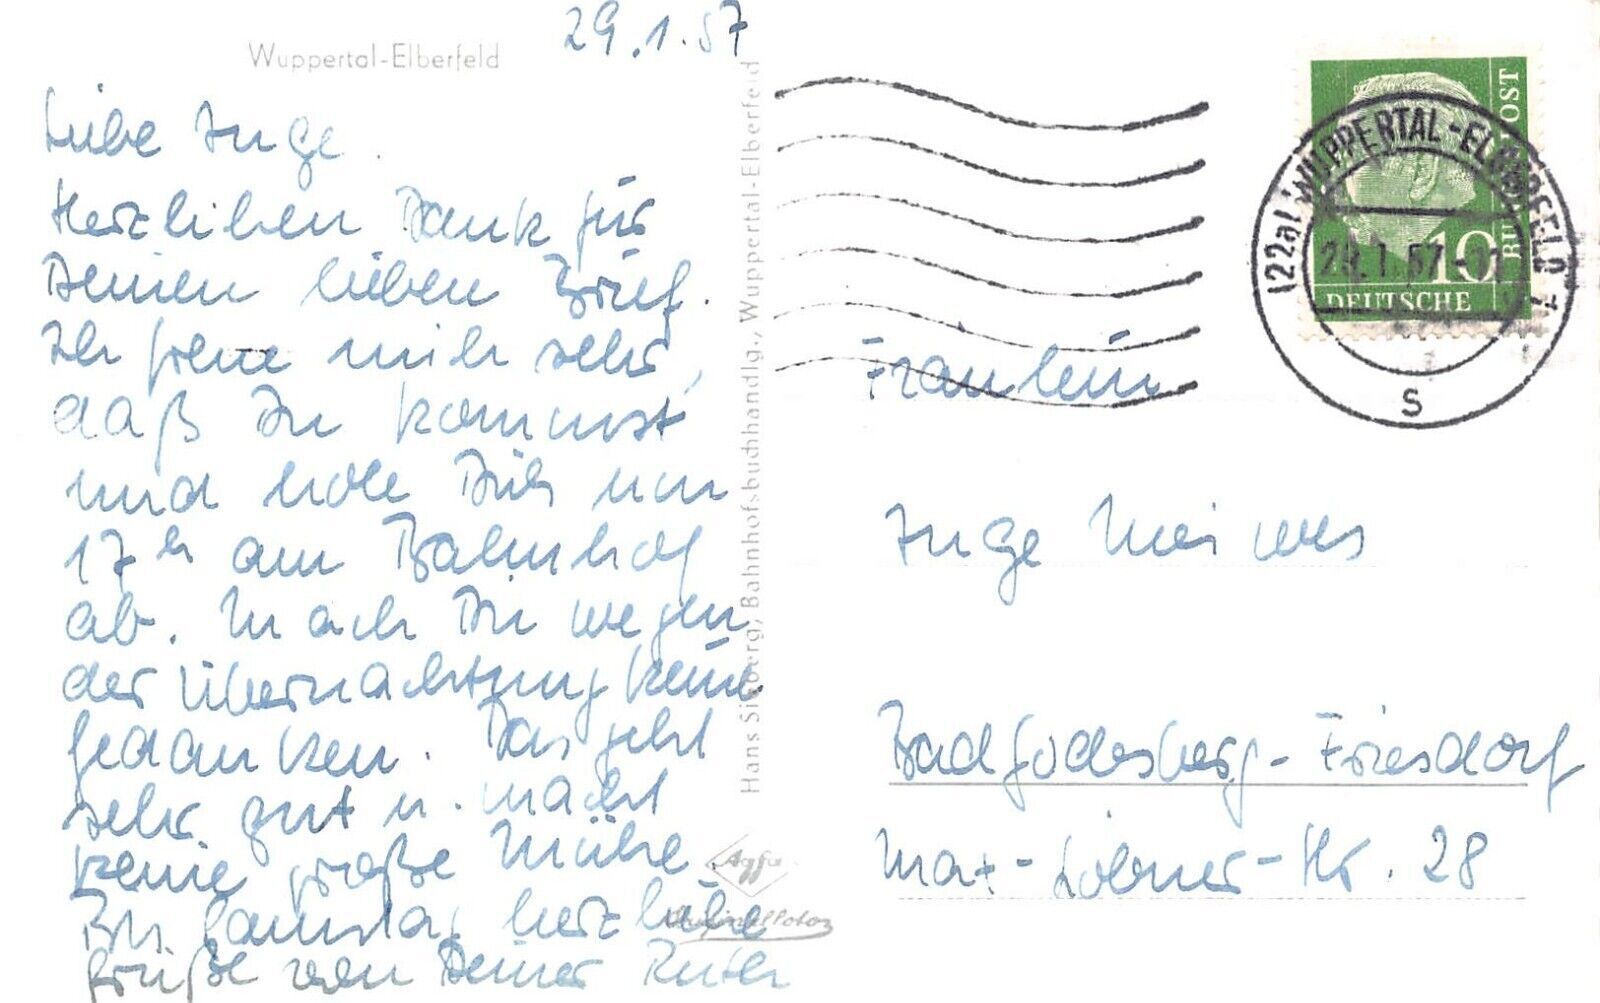 Wuppertal-Elberfeld
29.1.57
Liebe Inge.
Herzlichen Dank für
Deinen lieben Brief.
Ich freue mich sehr,
daß Du kommst
und hole Dich um
17 h am Bahnhof
ab. Mach Dir wegen
der Übernachtung keine
Gedanken. Das geht
sehr gut u. macht
keine große Mühe.
Bis Samstag herzliche
Grüße von Deiner Ruth
Hans Sieberg, Bahnhofsbuchhandlg., Wuppertal-Elberfeld
Agfa
DEUTSCHE
BUNDESPOST
10
(22a) WUPPERTAL-ELBERFELD
29.1.57
s
Fräulein
Inge Meiwes
Bad Godesberg-Friesdorf
Max-Löbner-Str. 28